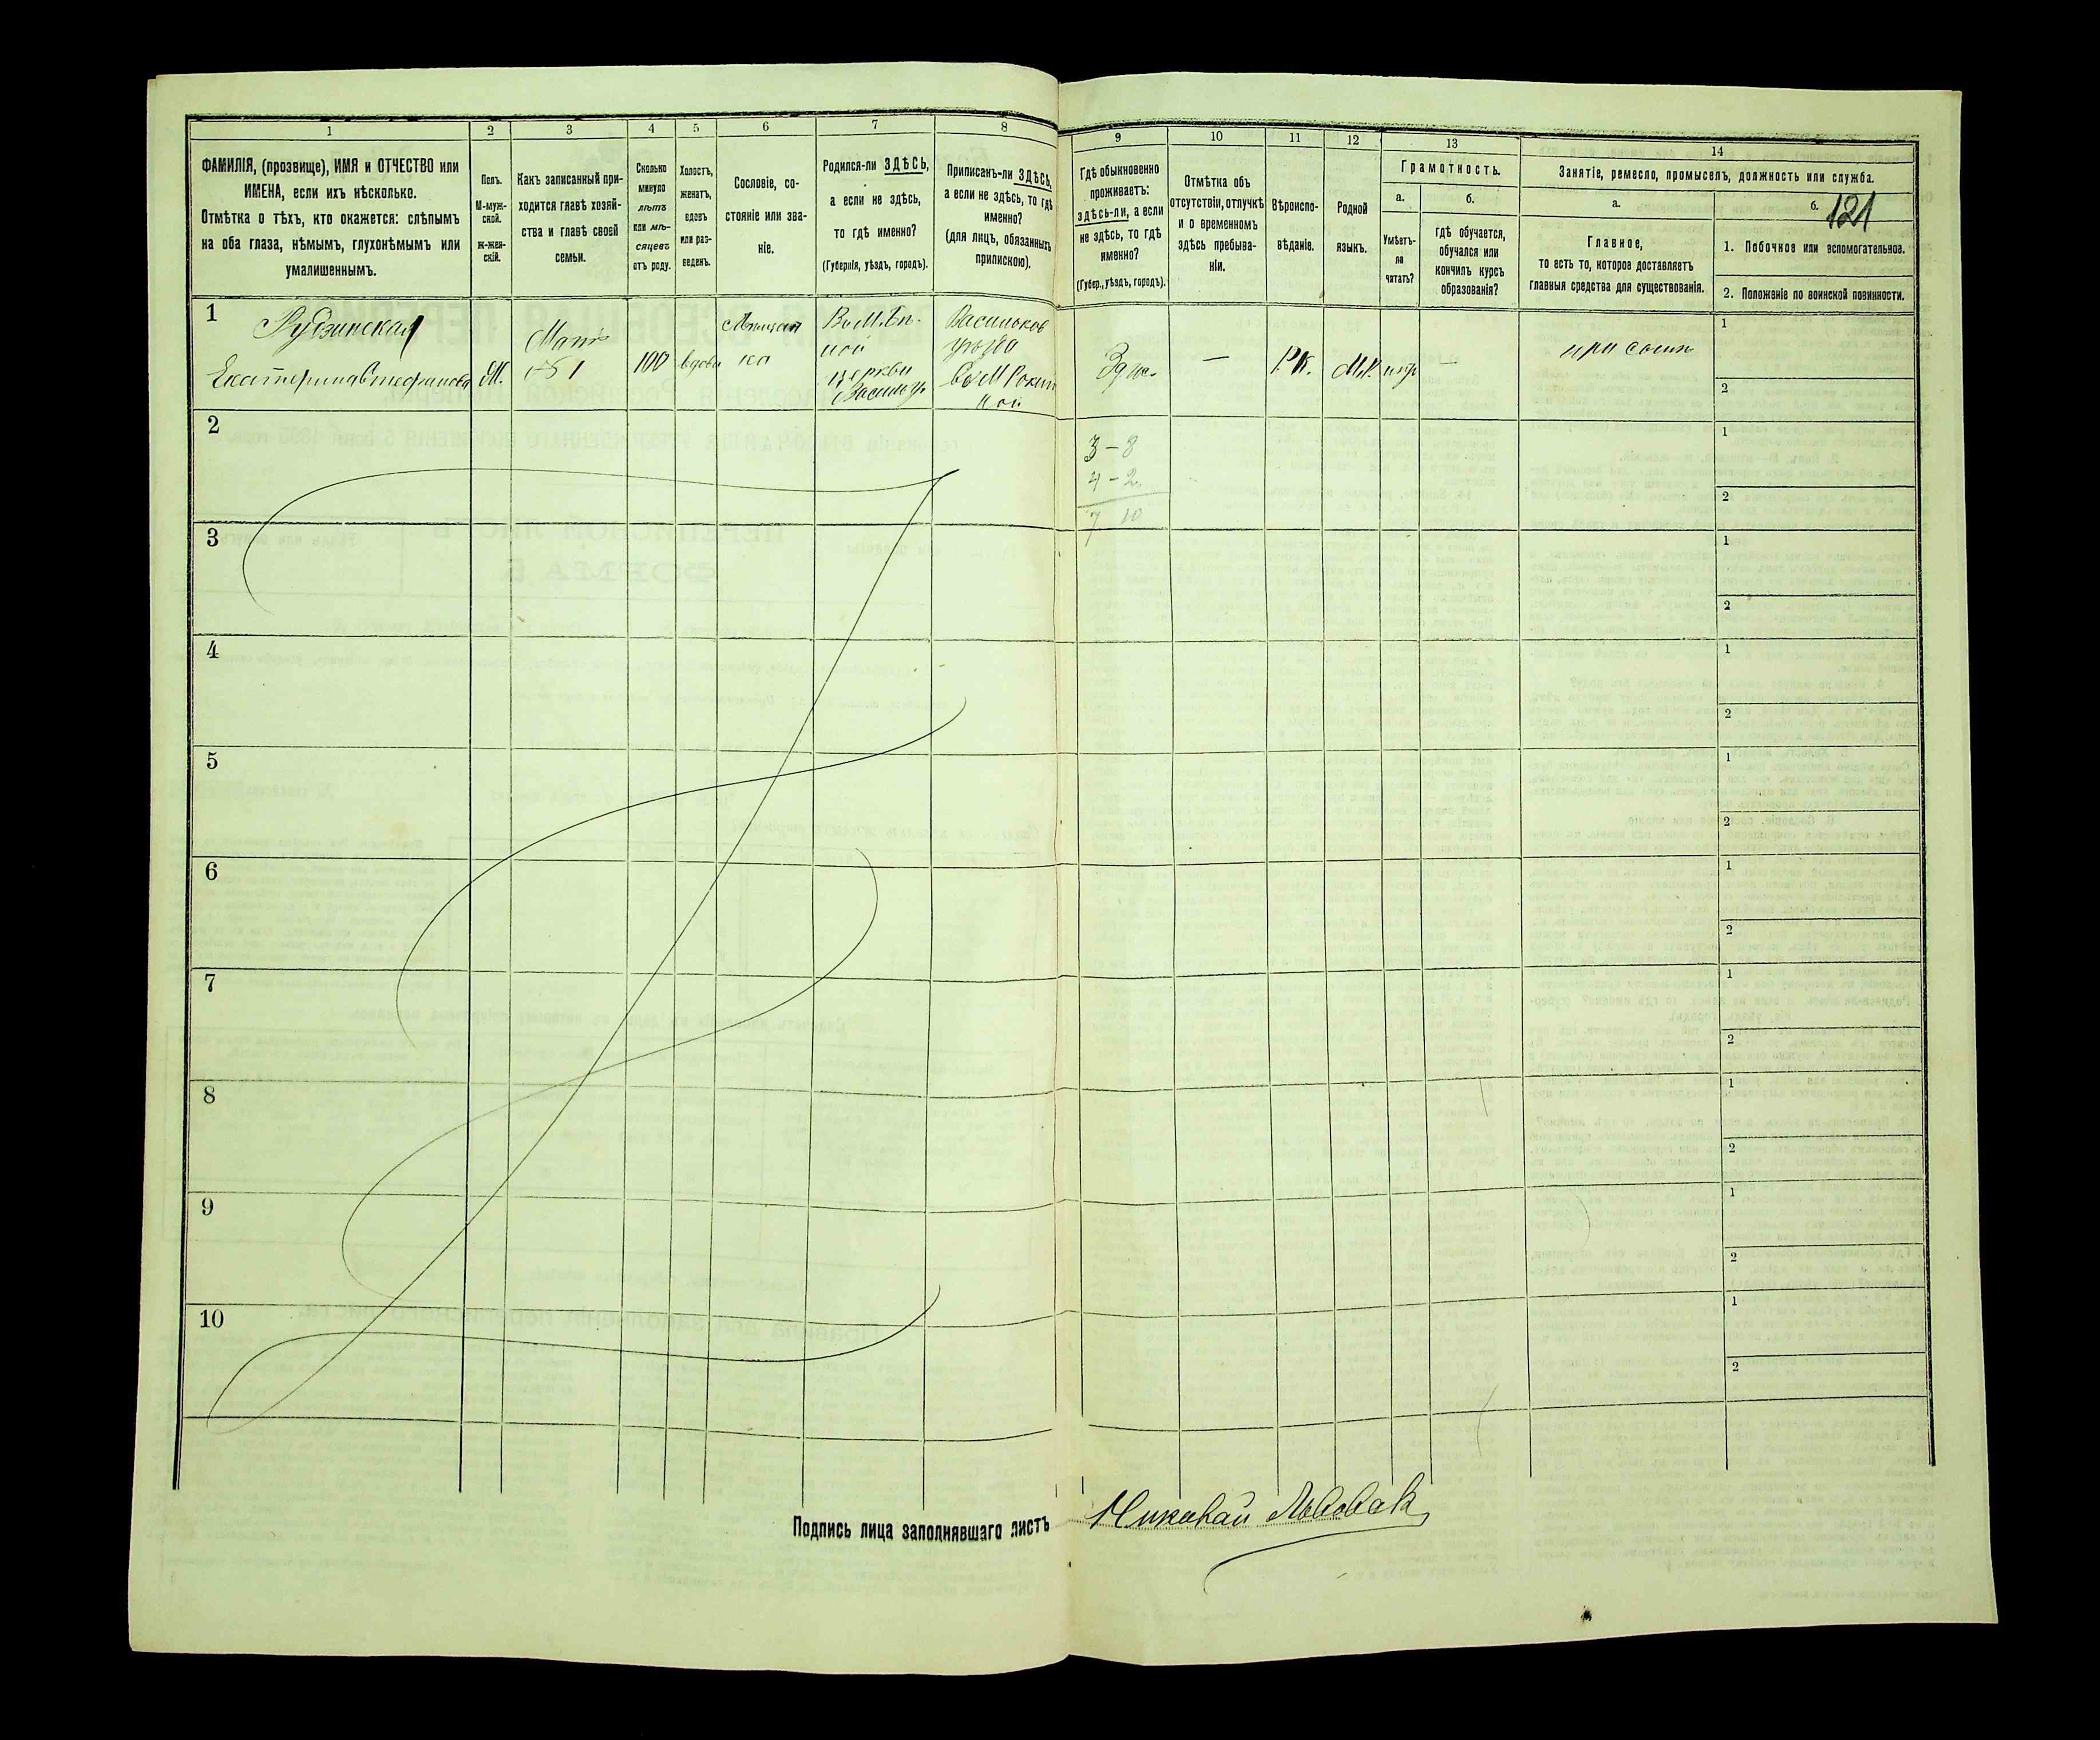 1 2 3 4 5 6 7 8 9 10 11 12 13 14
ФАМИЛІЯ, (прозвище), ИМЯ и ОТЧЕСТВО или
ИМЕНА, если ихъ нѣсколько.
Отмѣтка о тѣхъ, кто окажется: слѣпымъ
на оба глаза, нѣмымъ, глухонѣмымъ или
умалишеннымъ.
Полъ.
М-муж-
ской.
ж-жен-
скій.
Какъ записанный при-
ходится главѣ хозяй-
ства и главѣ своей
семьи.
Сколько
минуло
лѣтъ
или мѣ-
сяцевъ
отъ роду.
Холостъ,
женатъ,
вдовъ
или раз-
веденъ.
Сословіе, со-
стояніе или зва-
ніе.
Родился-ли ЗДѢСЬ,
а если не здѣсь,
то гдѣ именно?
(Губернія, уѣздъ, городъ).
Приписанъ-ли ЗДѢСЬ,
а если не здѣсь, то гдѣ
именно?
(для лицъ, обязанныхъ
припискою).
Гдѣ обыкновенно
проживаетъ:
здѣсь-ли, а если
не здѣсь, то гдѣ
именно?
(Губер., уѣздъ, городъ).
Отмѣтка объ
отсутствіи, отлучкѣ
и о временномъ
здѣсь пребыва-
ніи.
Вѣроиспо-
вѣданіе.
Родной
языкъ.
Грамотность.
а.
Умѣетъ-
ли
читать?
б.
гдѣ обучается,
обучался или
кончилъ курсъ
образованія?
Занятіе, ремесло, промыселъ, должность или служба.
а.
Главное,
то есть то, которое доставляетъ
главныя средства для существованія.
б.
121
1. Побочное или вспомогательное.
2. Положеніе по воинской повинности.
1
Рудзинская
Екатерина Стефанова
Мать
№ 1
100
вдова
Мѣщан
ка
церкви
Васильков
уѣзда
—
Р.К.
—
при сынѣ
1
2
2
3 – 8
4 – 2
7 10
1
2
3
1
2
4
1
2
5
1
2
6
1
2
7
1
2
8
1
2
9
1
2
10
1
2
Подпись лица заполнявшаго листъ Николай